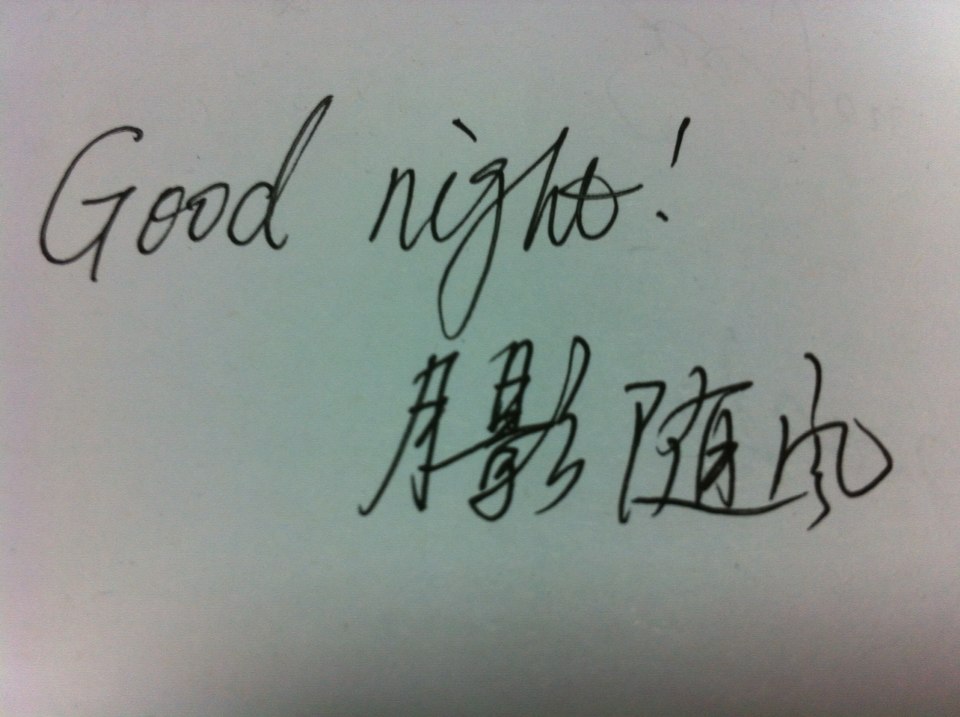 Good night!
月影随风